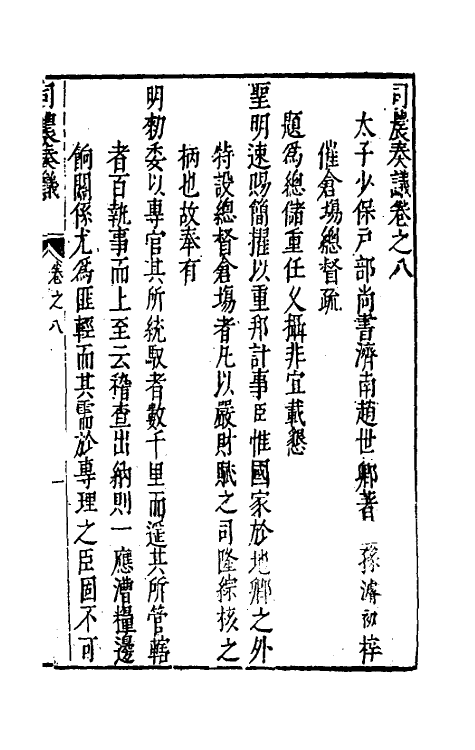 司農奏議卷之八
太子少保戶部尚書濟南趙世卿著 孫濬初梓
催倉場總督疏
題爲總儲重任久攝非宜載懇
聖明速賜簡擢以重邦計事臣惟國家於地卿之外
特設總督倉塲者凡以嚴財賦之司隆綜核之
柄也故奉有
明勑委以專官其所統馭者數千里而遥其所管轄
者百執事而上至云稽查出納則一應漕糧邊
餉關係尤爲匪輕而其需於專理之臣固不可
司農奏議 卷之八 一